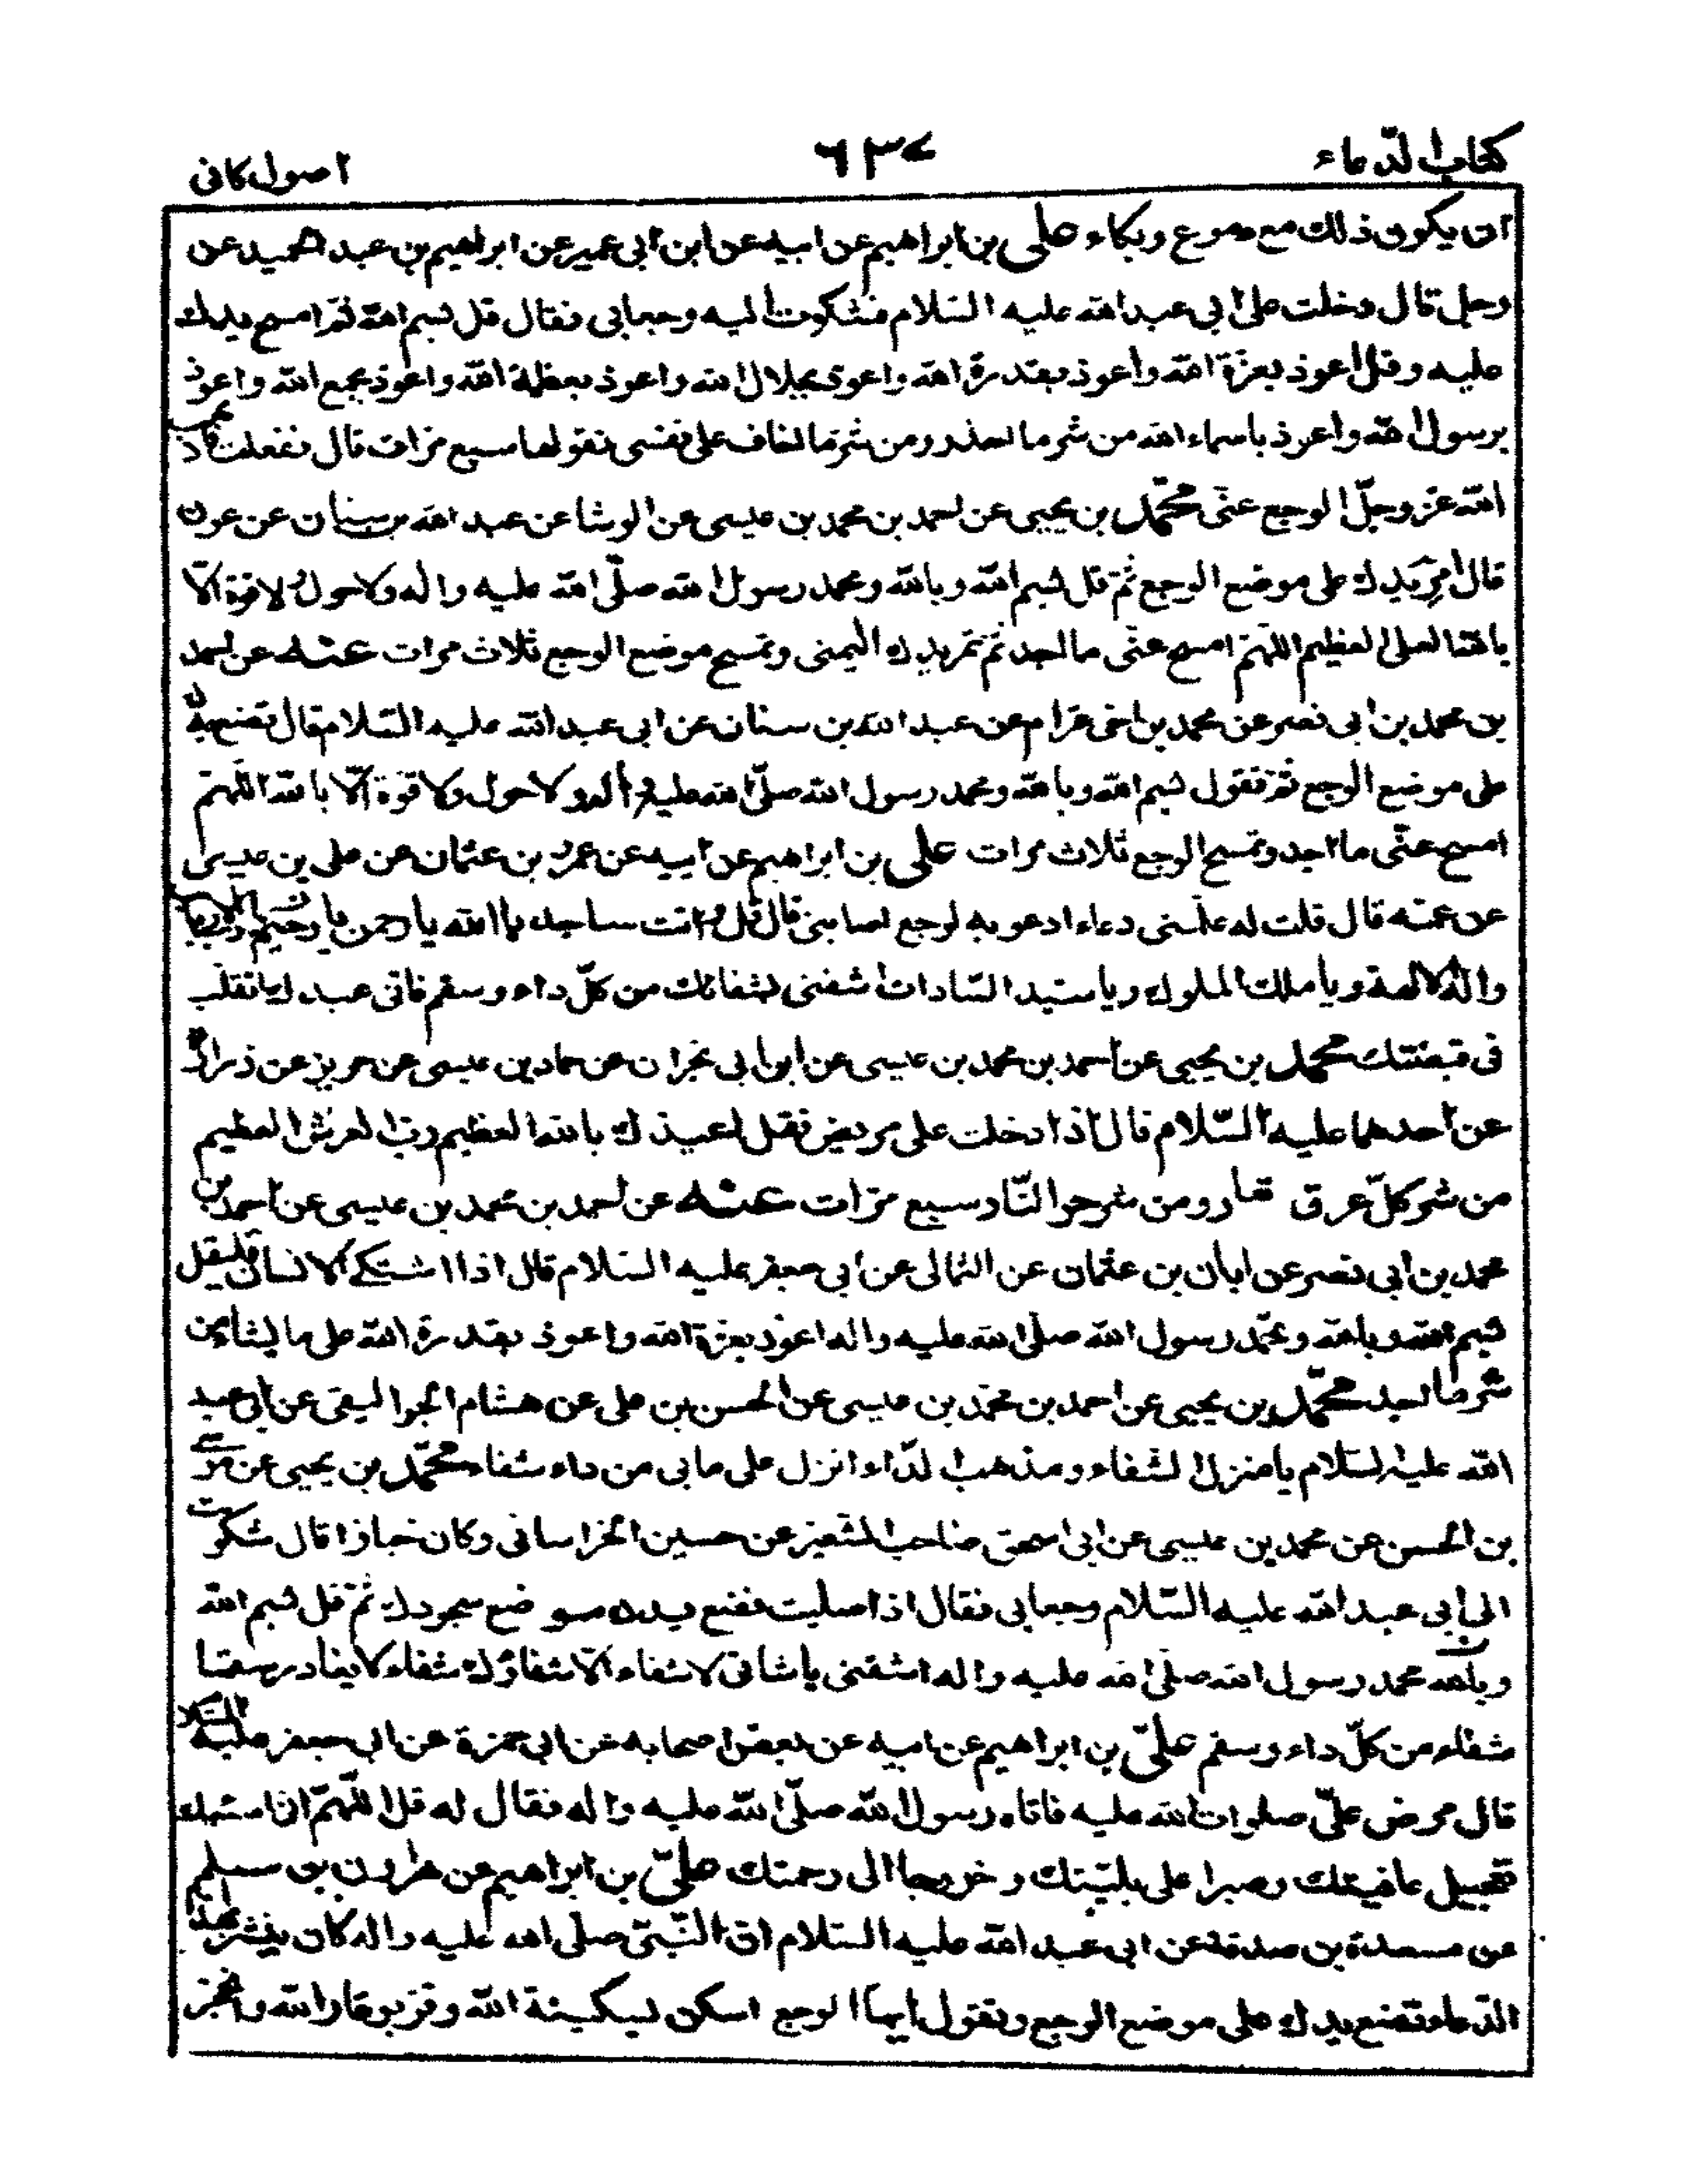 كتاب الدّعاء
٦٣٤
اصول كافى
ان يكون ذلك مع دموع وبكاء على بن ابراهيم عن ابيه عن ابن ابى عمير عن ابراهيم بن عبد الحميد عن
رجل قال دخلت على ابى عبد الله عليه السّلام فشكوت اليه وجعا بى فقال قل بسم الله ثمّ امسح يدك
عليه وقل اعوذ بعزّة الله واعوذ بقدرة الله واعوذ بجلال الله واعوذ بعظمة الله واعوذ بجمع الله واعوذ
برسول الله واعوذ باسماء الله من شرّ ما احذر ومن شرّ ما اخاف على نفسى تقولها سبع مرّات قال ففعلت فاذهب
الله عزّ وجلّ الوجع عنّى محمّد بن يحيى عن احمد بن محمد بن عيسى عن الوشا عن عبد الله بن سنان عن عون
قال امرّ يدك على موضع الوجع ثمّ قل بسم الله وبالله ومحمد رسول الله صلّى الله عليه واله ولا حول ولا قوة الّا
بالله العلى العظيم اللّهمّ امسح عنّى ما اجد ثمّ تمرّ يدك اليمنى وتمسح موضع الوجع ثلاث مرات عنه عن احمد
بن محمد بن ابى نصر عن محمد بن اخى غرام عن عبد الله بن سنان عن ابى عبد الله عليه السّلام قال تضع يدك
على موضع الوجع ثمّ تقول بسم الله وبالله ومحمد رسول الله صلّى الله عليه واله ولا حول ولا قوّة الّا بالله اللّهمّ
امسح عنّى ما اجد وتمسح الوجع ثلاث مرات على بن ابراهيم عن ابيه عن عمرو بن عثمان عن على بن عيسى
عن عمّه قال قلت له علّمنى دعاء ادعو به لوجع اصابنى قال قل وانت ساجد يا الله يا رحمن يا رحيم يا ربّ الارباب
واله الالهة ويا ملك الملوك ويا سيّد السّادات اشفنى بشفائك من كلّ داء وسقم فانّى عبدك اتقلّب
فى قبضتك محمد بن يحيى عن احمد بن محمد بن عيسى عن ابن ابى نجران عن حماد بن عيسى عن حريز عن زرارة
عن احدهما عليه السّلام قال اذا دخلت على مريض فقل اعيذك بالله العظيم ربّ العرش العظيم
من شر كلّ عرق نعار ومن شرّ حرّ النّار سبع مرّات عنه عن احمد بن محمد بن عيسى عن احمد بن
محمد بن ابى نصر عن ابان بن عثمان عن الثمالى عن ابى جعفر عليه السّلام قال اذا اشتكى الانسان فليقل
بسم الله وبالله ومحمّد رسول الله صلّى الله عليه واله اعوذ بعزّة الله واعوذ بقدرة الله على ما يشاء من
شرّ ما اجد محمّد بن يحيى عن احمد بن محمّد بن عيسى عن الحسن بن على عن هشام الجواليقى عن ابى عبد
الله عليه السّلام يا منزل الشفاء ومذهب الدّاء انزل على ما بى من داء شفاء محمّد بن يحيى عن موسى
بن الحسن عن محمد بن عيسى عن ابى اسحق صاحب الشعير عن حسين الخراسانى وكان خبازا قال شكوت
الى ابى عبد الله عليه السّلام وجعا بى فقال اذا صليت فضع يدك موضع سجودك ثمّ قل بسم الله
وبالله محمد رسول الله صلّى الله عليه واله اشفنى يا شافى لا شفاء الّا شفاؤك شفاء لا يغادر سقما
شفاء من كلّ داء وسقم علىّ بن ابراهيم عن ابيه عن بعض اصحابه عن ابى حمزة عن ابى جعفر عليه السّلام
قال مرض علىّ صلوات الله عليه فاتاه رسول الله صلّى الله عليه واله فقال له قل اللّهمّ انى اسئلك
تعجيل عافيتك وصبرا على بليّتك وخروجا الى رحمتك علىّ بن ابراهيم عن هارون بن مسلم
عن مسعدة بن صدقة عن ابى عبد الله عليه السّلام انّ النّبىّ صلّى الله عليه واله كان ينشر بهذا
الدّعاء وتضع يدك على موضع الوجع وتقول ايها الوجع اسكن بسكينة الله وقر بوقار الله وانحجز